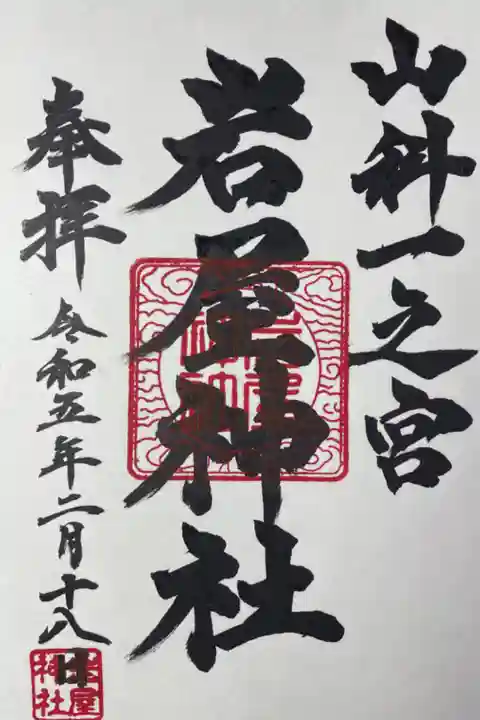 山科一之宮
岩屋神社
奉拝
令和五年二月十八日
岩屋神社